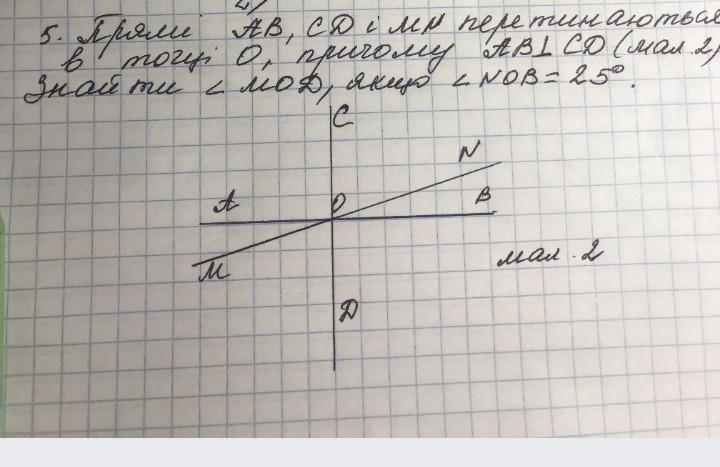 5. Прямі AB, CD і MN перетинаються
в точці O, причому AB⊥CD (мал. 2)
Знайти ∠MOD, якщо ∠NOB = 25°.
C
N
A
O
B
M
мал. 2
D